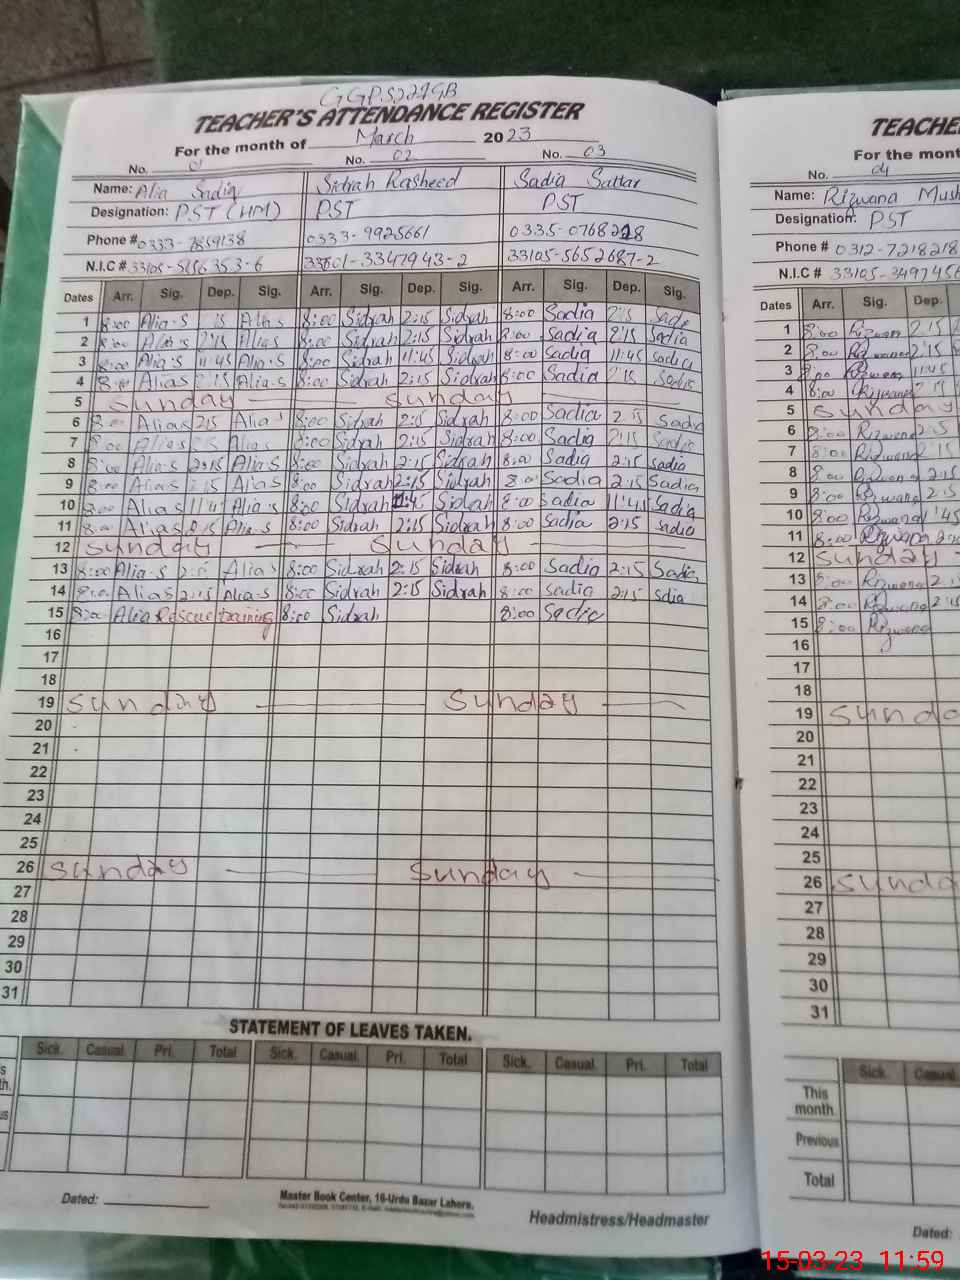 GGPS 227GB
TEACHER'S ATTENDANCE REGISTER
For the month of March 2023
No. 01 No. 02 No. 03
Name: Alia Sadiq Sidrah Rasheed Sadia Sattar
Designation: PST (HM) PST PST
Phone # 0333-7859138 0333-9925661 0335-0768218
N.I.C # 33105-5656353-6 33601-3347943-2 33105-5652687-2
Dates Arr. Sig. Dep. Sig. Arr. Sig. Dep. Sig. Arr. Sig. Dep. Sig.
1 8:00 Alia-S 15 Alia S 8:00 Sidrah 2:15 Sidrah 8:00 Sadia 2:15 Sadia
2 8:00 Alia S 2:15 Alia S 8:00 Sidrah 2:15 Sidrah 8:00 Sadia 2:15 Sadia
3 8:00 Alia-S 11:45 Alia-S 8:00 Sidrah 11:45 Sidrah 8:00 Sadia 11:45 sadia
4 8:00 Alias 2:15 Alia-S 8:00 Sidrah 2:15 Sidrah 8:00 Sadia 2:15 Sadia
5 Sunday Sunday
6 8:00 Alias 2:15 Alia-S 8:00 Sidrah 2:15 Sidrah 8:00 Sadia 2:15 Sadia
7 8:00 Alias 2:15 Alia 8:00 Sidrah 2:15 Sidrah 8:00 Sadia 2:15 Sadia
8 8:00 Alia-S 2:15 Alia-S 8:00 Sidrah 2:15 Sidrah 8:00 Sadia 2:15 sadia
9 8:00 AliaS 2:15 AliaS 8:00 Sidrah 2:15 Sidrah 8:00 Sadia 2:15 Sadia
10 8:00 AliaS 11:45 Alia-S 8:00 Sidrah 11:45 Sidrah 8:00 Sadia 11:45 Sadia
11 8:00 Alias 2:15 Alia-S 8:00 Sidrah 2:15 Sidrah 8:00 Sadia 2:15 sadia
12 Sunday Sunday
13 8:00 Alia-S 2:15 Alia S 8:00 Sidrah 2:15 Sidrah 8:00 Sadia 2:15 Sadia
14 8:00 Alias 2:15 Alia-S 8:00 Sidrah 2:15 Sidrah 8:00 Sadia 2:15 sdia
15 8:00 Alia Rescue training 8:00 Sidrah 8:00 Sadia
16
17
18
19 Sunday Sunday
20
21
22
23
24
25
26 Sunday Sunday
27
28
29
30
31
STATEMENT OF LEAVES TAKEN.
Sick. Casual. Pri. Total Sick. Casual. Pri. Total Sick. Casual. Pri. Total
Dated:
Master Book Center, 16-Urdu Bazar Lahore.
Headmistress/Headmaster
TEACHE
For the mont
No. 04
Name: Rizwana Mush
Designation: PST
Phone # 0312-7218218
N.I.C # 33105-3497456
Dates Arr. Sig. Dep.
1 8:00 Rizwan 2:15
2 8:00 Rizwana 2:15
3 8:00 Rizwan 11:45
4 8:00 Rizwana 2:15
5 Sunday
6 8:00 Rizwana 2:15
7 8:00 Rizwana 2:15
8 8:00 Rizwana 2:15
9 8:00 Rizwana 2:15
10 8:00 Rizwana 11:45
11 8:00 Rizwana 2:15
12 Sunday
13 8:00 Rizwana 2:15
14 8:00 Rizwana 2:15
15 8:00 Rizwana
16
17
18
19 Sunda
20
21
22
23
24
25
26 Sunda
27
28
29
30
31
Sick. Casual.
This month.
Previous
Total
Dated:
15-03-23 11:59